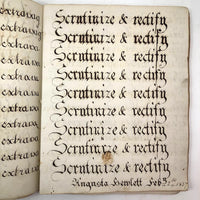 extravag
extrava
extrava
extrava
extrava
extrava
extrava
extrava
extrava
Scrutinize & rectify
Scrutinize & rectify
Scrutinize & rectify
Scrutinize & rectify
Scrutinize & rectify
Scrutinize & rectify
Scrutinize & rectify
Scrutinize & rectify
Scrutinize & rectify
Augusta Hewlett Feb